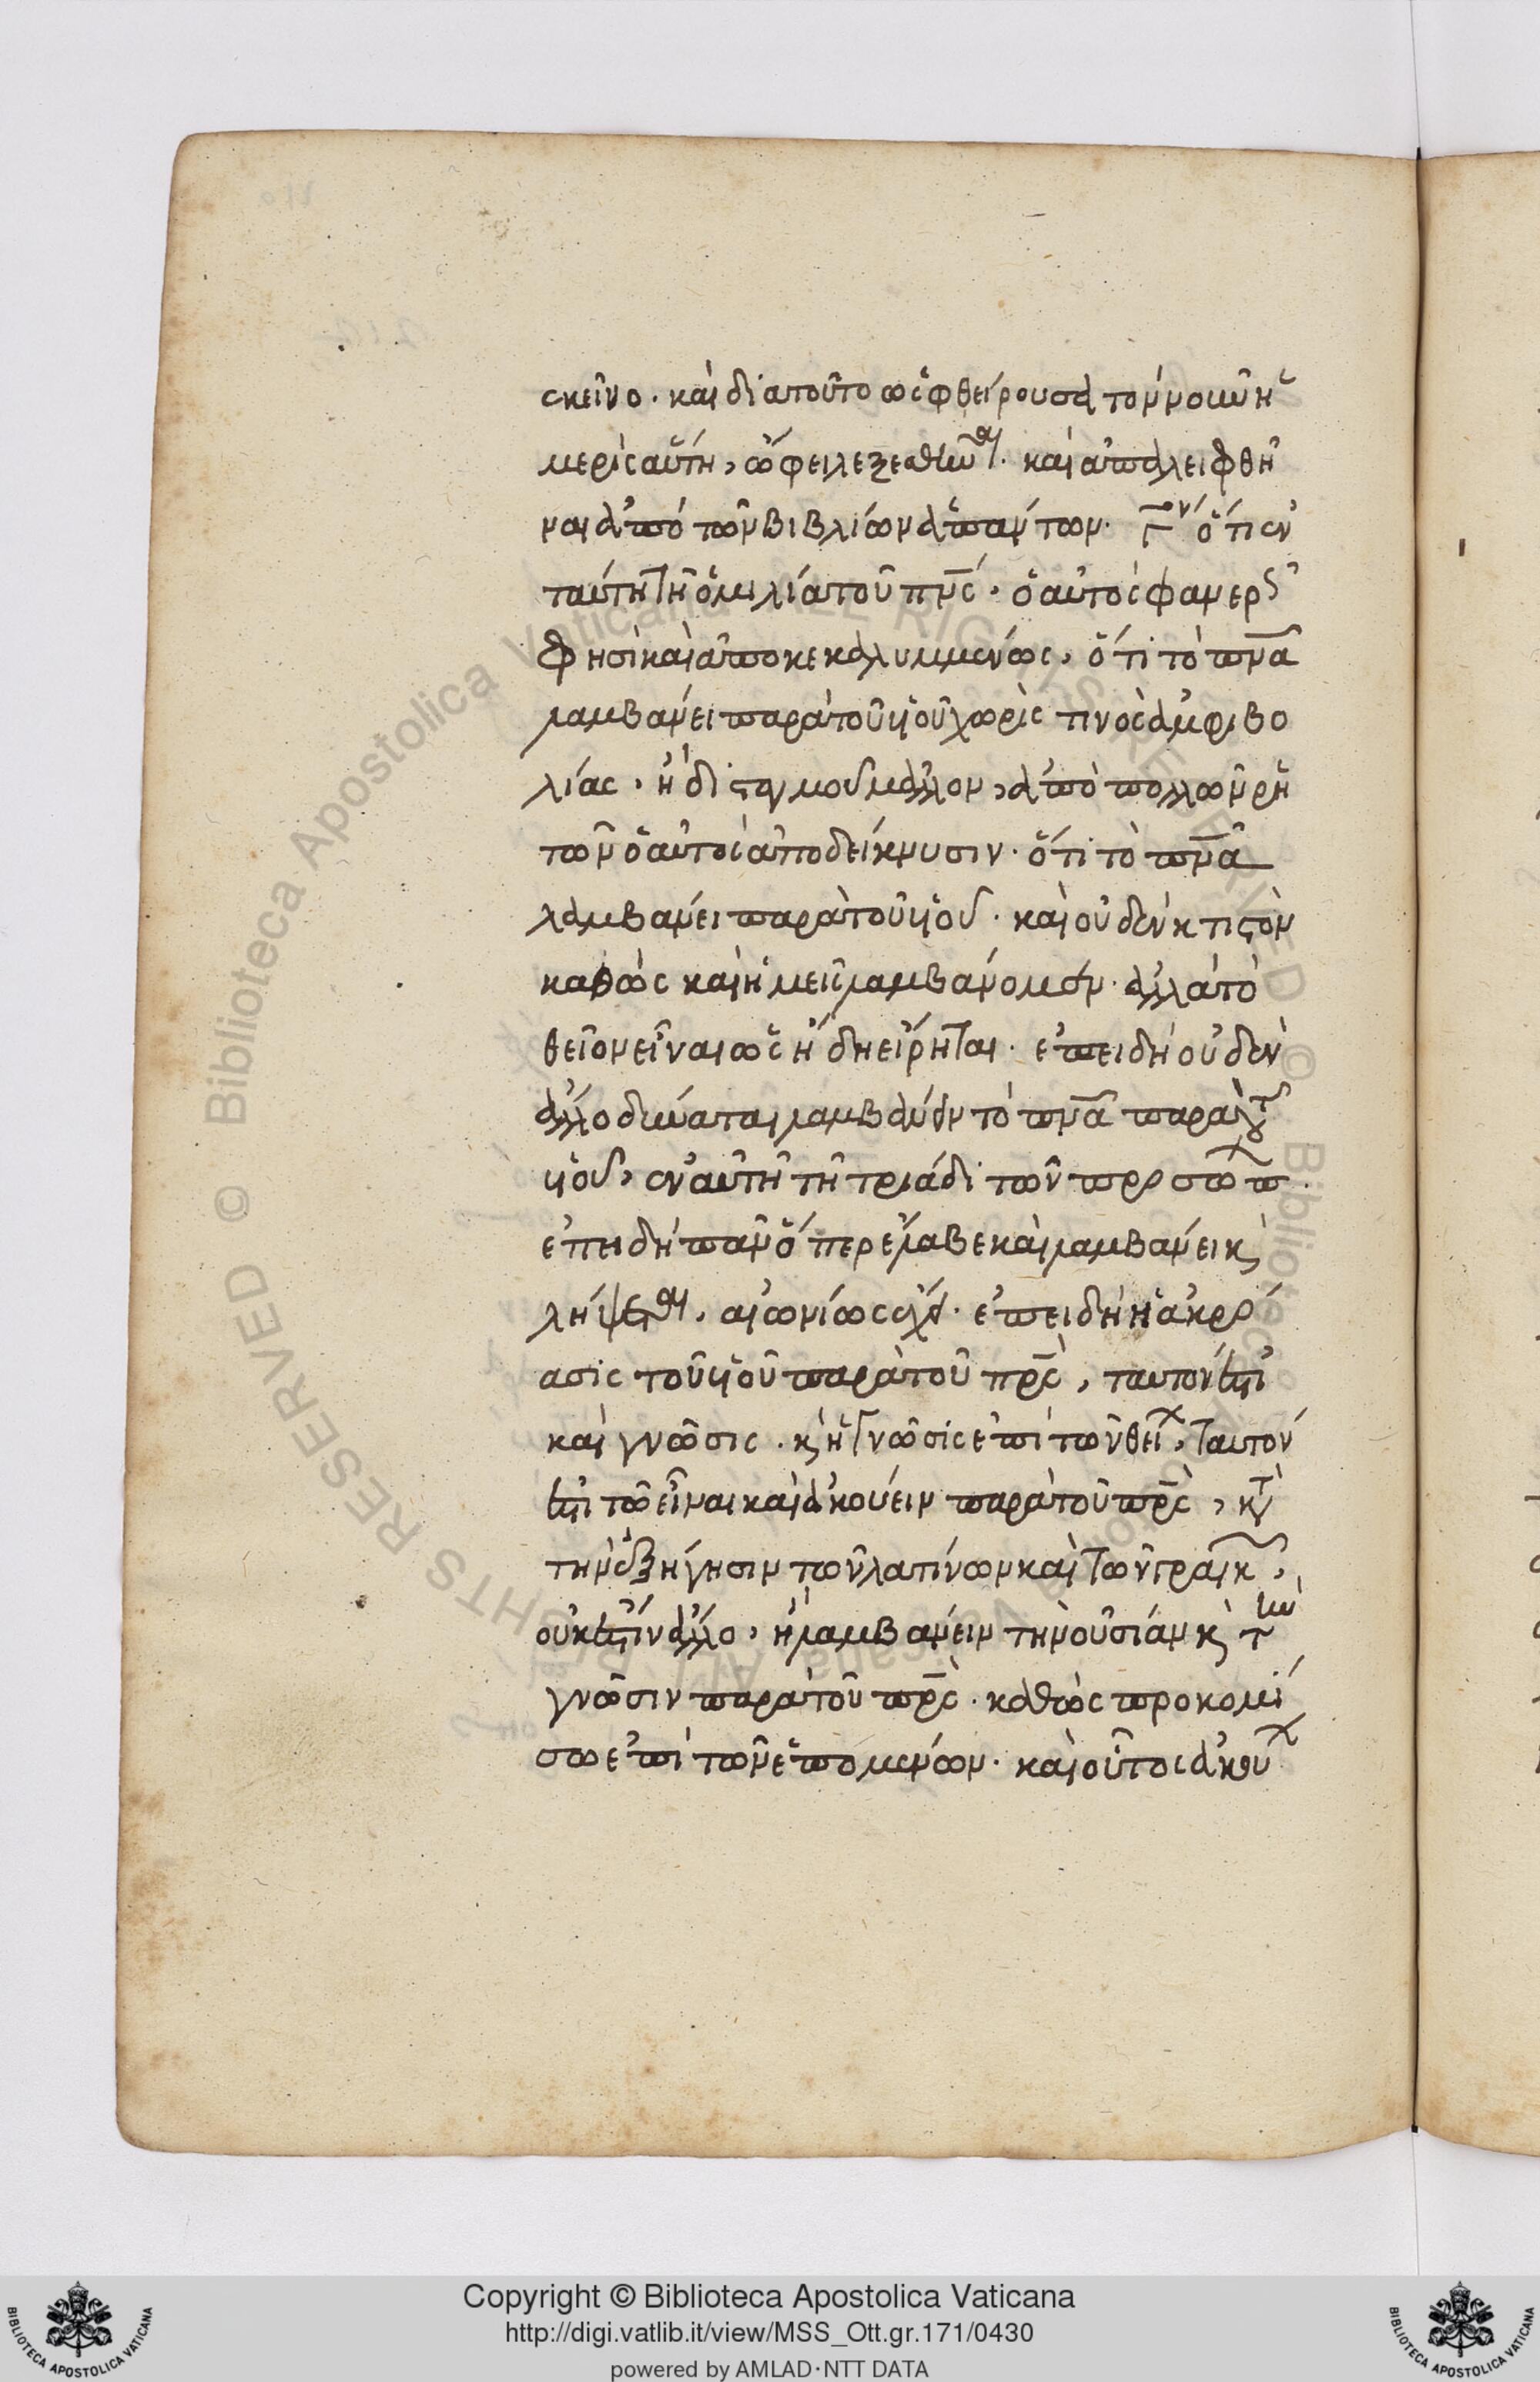 ἐκεῖνο. καὶ διὰ τοῦτο ὡς φθείρουσα τὸν νοῦν ἡ
μερὶς αὕτη, ὤφειλε ξεσθῆναι. καὶ ἀπαλειφθῆ
ναι ἀπὸ τῶν βιβλίων ἁπάντων. Γον ὅτι ἐν
ταύτῃ τῇ ὁμιλίᾳ τοῦ πνς. ὁ αὐτὸς φανερῶς
φησὶ καὶ ἀποκεκαλυμμένως, ὅτι τὸ πνα
λαμβάνει παρὰ τοῦ υἱοῦ χωρίς τινος ἀμφιβο
λίας. ἢ διςαγμοῦ μᾶλλον, ἀπὸ πολλῶν ρη
τῶν ὁ αὐτὸς ἀποδείκνυσιν. ὅτι τὸ πνα
λαμβάνει παρὰ τοῦ υἱοῦ. καὶ οὐδὲν κτιςὸν
καθὼς καὶ ἡμεῖς λαμβάνομεν. ἀλλὰ τὸ
θεῖον εἶναι ὡς ἤδη εἴρηται. ἐπειδὴ οὐδὲν
ἄλλο δύναται λαμβάνειν τὸ πνα παρὰ τοῦ
υἱοῦ, ἐν αὐτῇ τῇ τριάδι τῶν προσώπ.
ἐπειδὴ πᾶν ὅπερ ἔλαβε καὶ λαμβάνει κ
λήψεται, αἰωνίως ἔχει. ἐπειδὴ ἡ ἀκρό
ασις τοῦ υἱοῦ παρὰ τοῦ πρς, ταυτόν ἐςι
καὶ γνῶσις. κ ἡ γνῶσις ἐπὶ τῶν θεί, ταυτόν
ἐςι τῷ εἶναι καὶ ἀκούειν παρὰ τοῦ πρς, κτ
τὴν ἐξήγησιν τῶν λατίνων καὶ τῶν γραικ,
οὐκ ἔςιν ἄλλο, ἢ λαμβάνειν τὴν οὐσίαν κ τὴν
γνῶσιν παρὰ τοῦ πρς. καθὼς προκομί
σω ἐπὶ τῶν ἑπομένων. καὶ οὗτος ἀκου
Copyright © Biblioteca Apostolica Vaticana
http://digi.vatlib.it/view/MSS_Ott.gr.171/0430
powered by AMLAD·NTT DATA